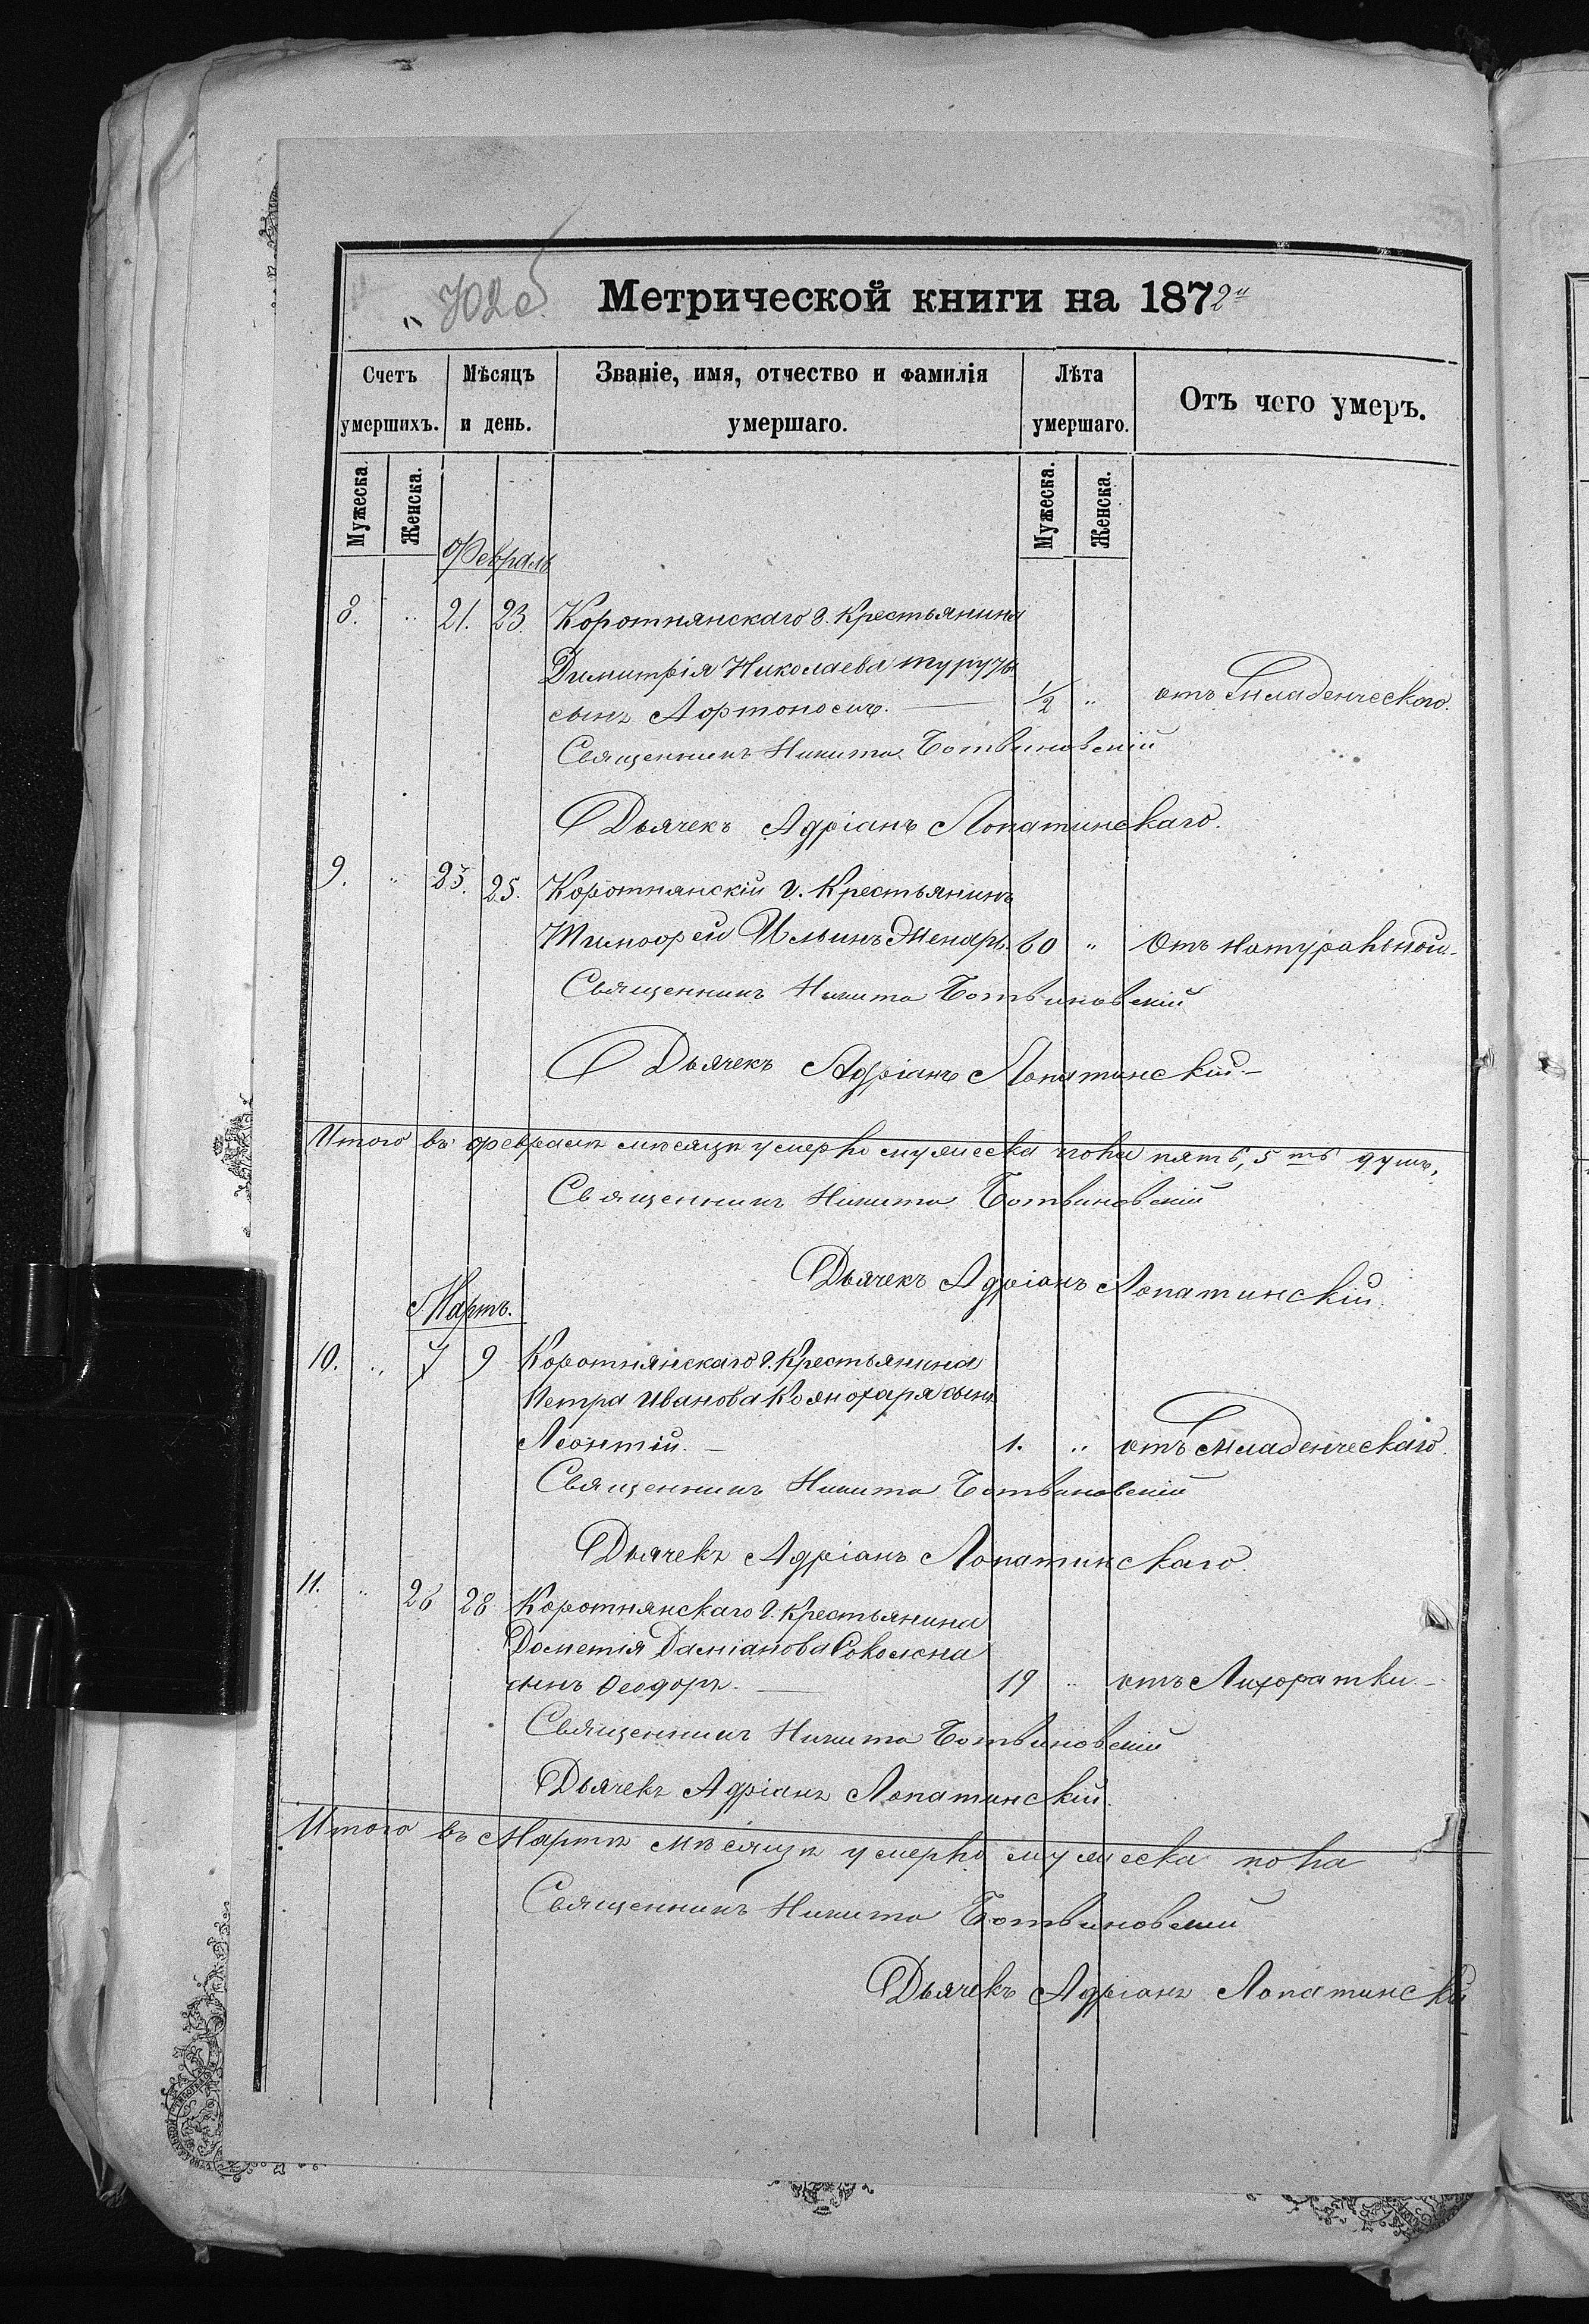 702 об
Метрической книги на 1872й
Счетъ умершихъ. Мѣсяцъ и день. Званіе, имя, отчество и фамилія умершаго. Лѣта умершаго. Отъ чего умеръ.
Мужеска. Женска. Мужеска. Женска.
Февраль
8. " 21. 23. Коротнянскаго О. Крестьянина
Димитрія Николаева
сынъ ½ " отъ Младенческаго.
Священникъ Никита Ботвиновскій
Дьячекъ Адріанъ Лопатинскаго.
9. " 23. 25. Коротнянскій О. Крестьянинъ
Тимофей Ильинъ 60 " Отъ натуральной.
Священникъ Никита Ботвиновскій
Дьячекъ Адріанъ Лопатинскій. —
Итого въ февралѣ мѣсяцѣ умерло мужеска пола пять, 5ть душъ,
Священникъ Никита Ботвиновскій
Дьячекъ Адріанъ Лопатинскій.
Мартъ.
10. " 7 9 Коротнянскаго О. Крестьянина
Петра Иванова сынъ
Леонтій. — 1. " отъ Младенческаго.
Священникъ Никита Ботвиновскій
Дьячекъ Адріанъ Лопатинскаго.
11. " 26 28 Коротнянскаго О. Крестьянина
Дометія Даміанова
сынъ Феодоръ. — 19 " отъ Лихоратки. —
Священникъ Никита Ботвиновскій
Дьячекъ Адріанъ Лопатинскій.
Итого въ Мартѣ мѣсяцѣ умерло мужеска пола
Священникъ Никита Ботвиновскій
Дьячекъ Адріанъ Лопатинскій